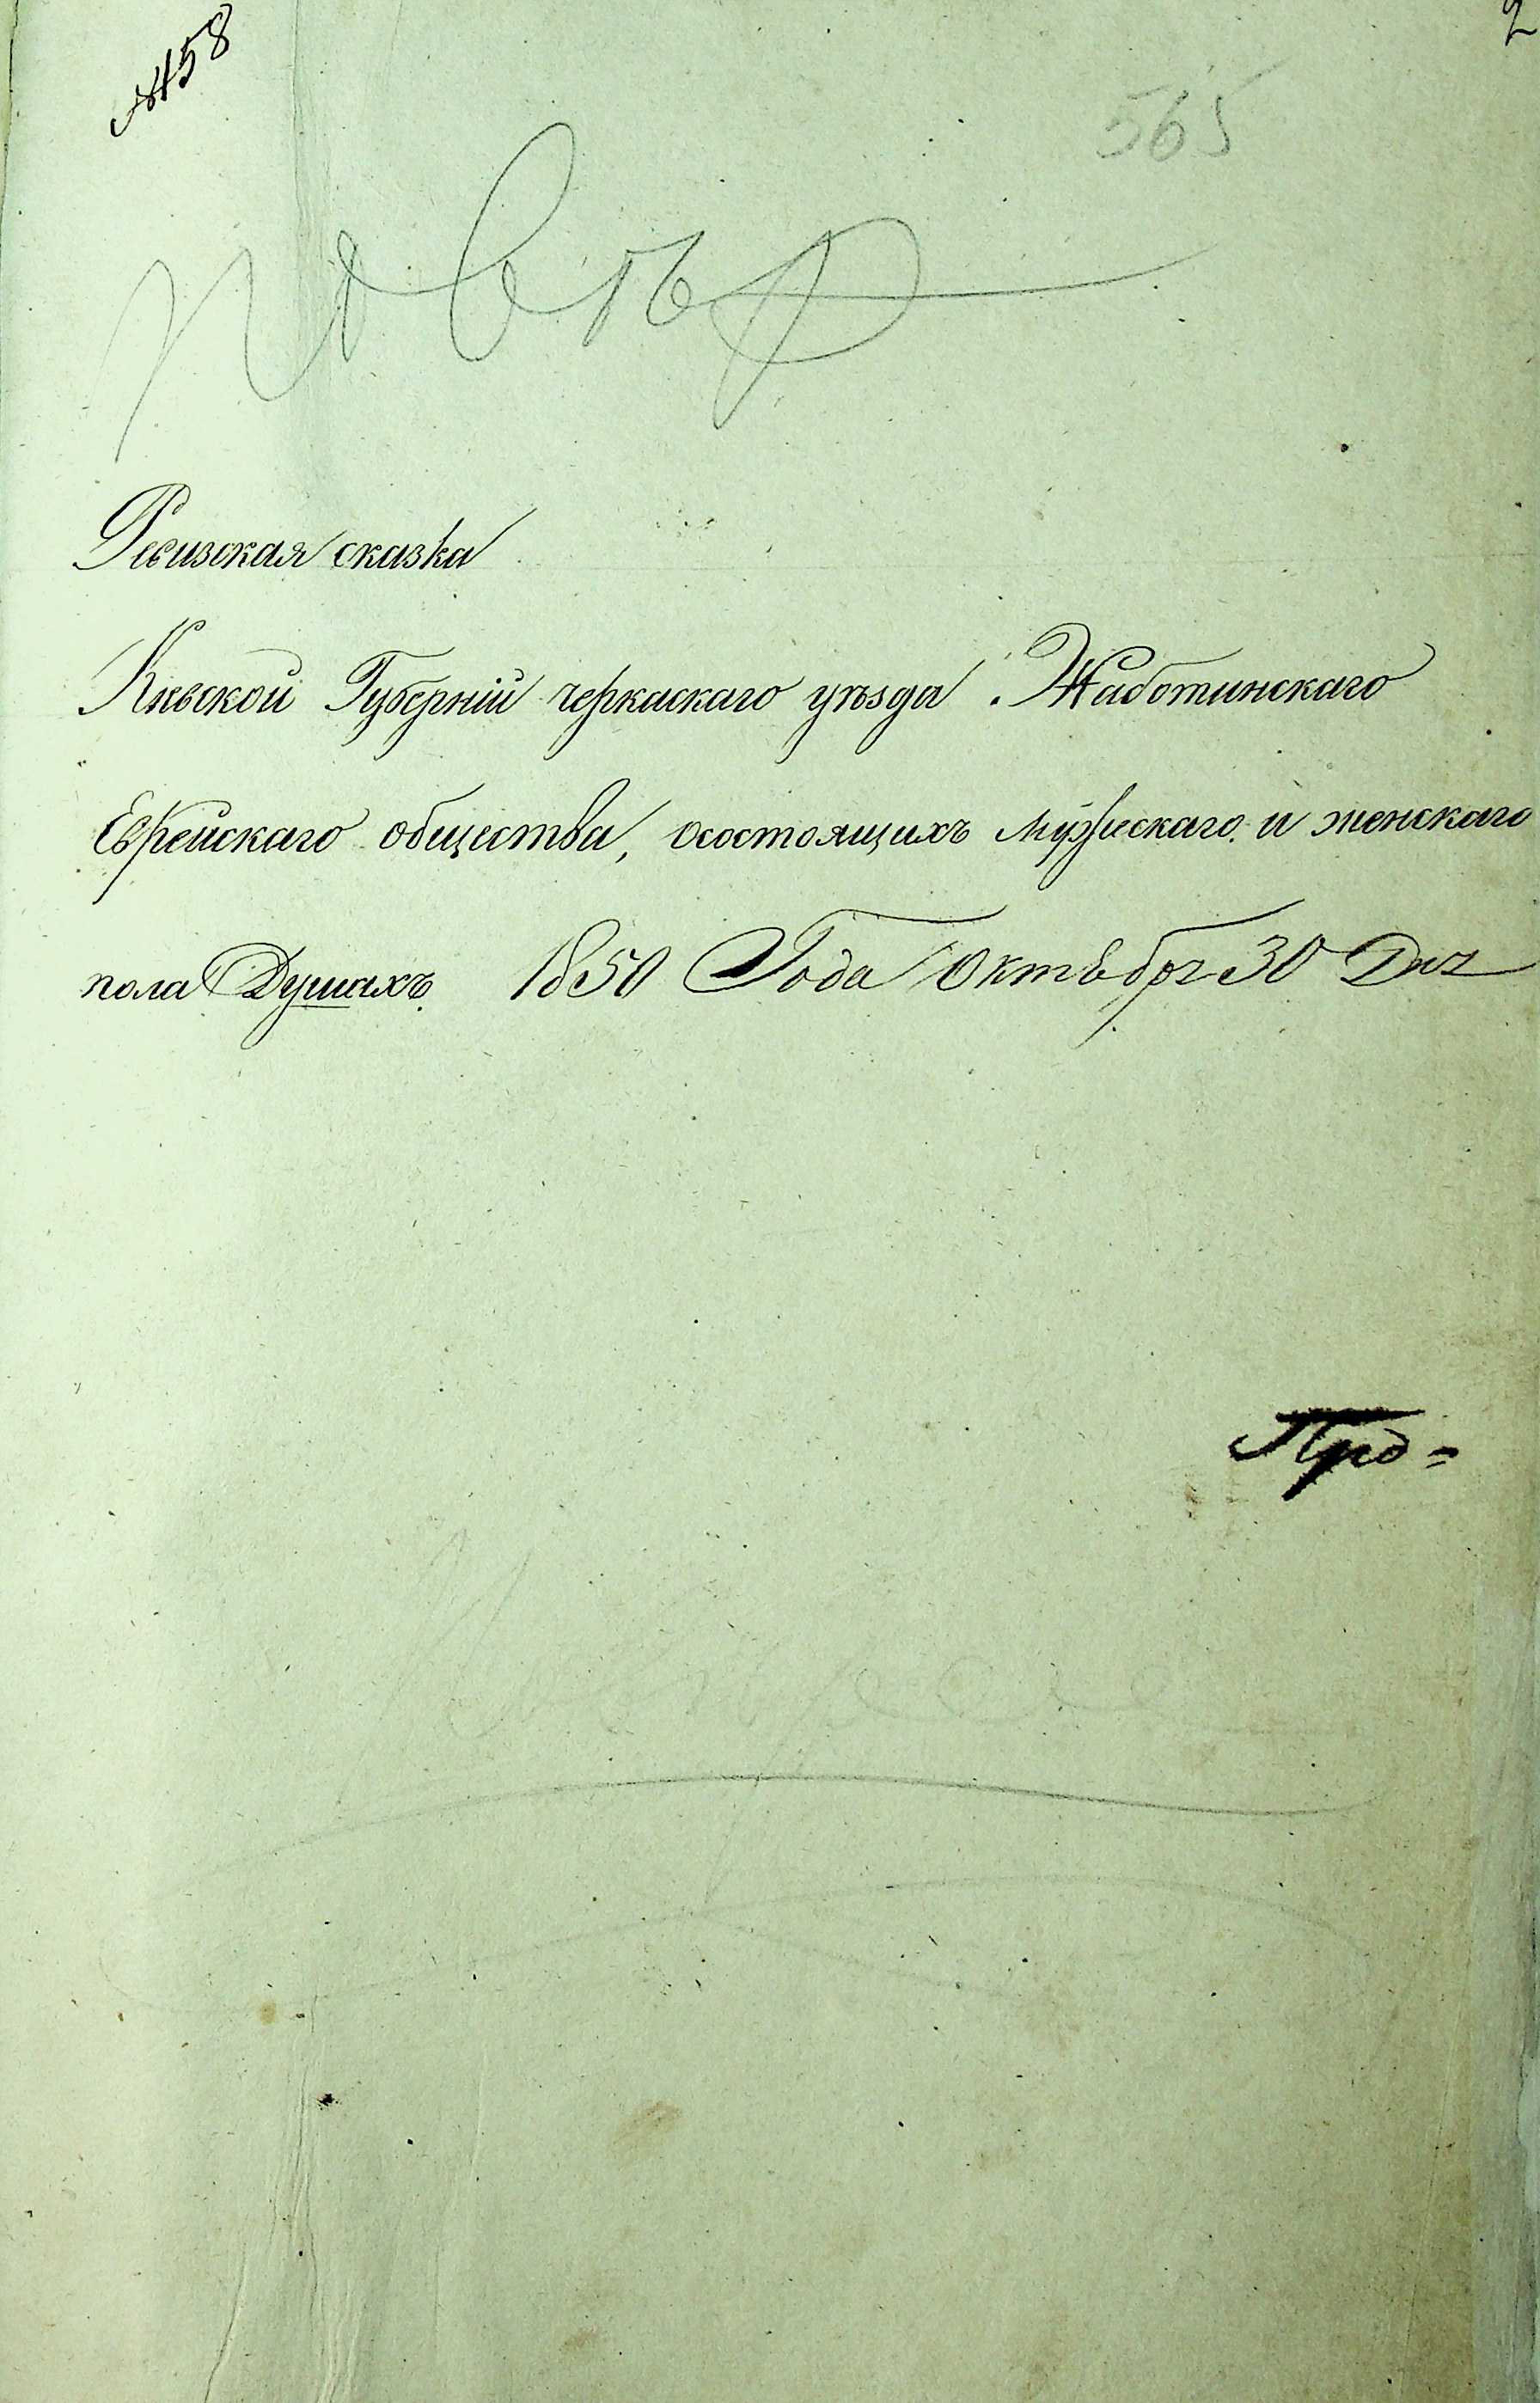 № 58
2
565
повѣр
Ревизская сказка
Киевской Губерніи черкаскаго уѣзда Жаботинскаго
Еврейскаго общества, осостоящихъ Мужескаго и женскаго
пола Душахъ 1850 Года Октебря 30 Дня
Про=